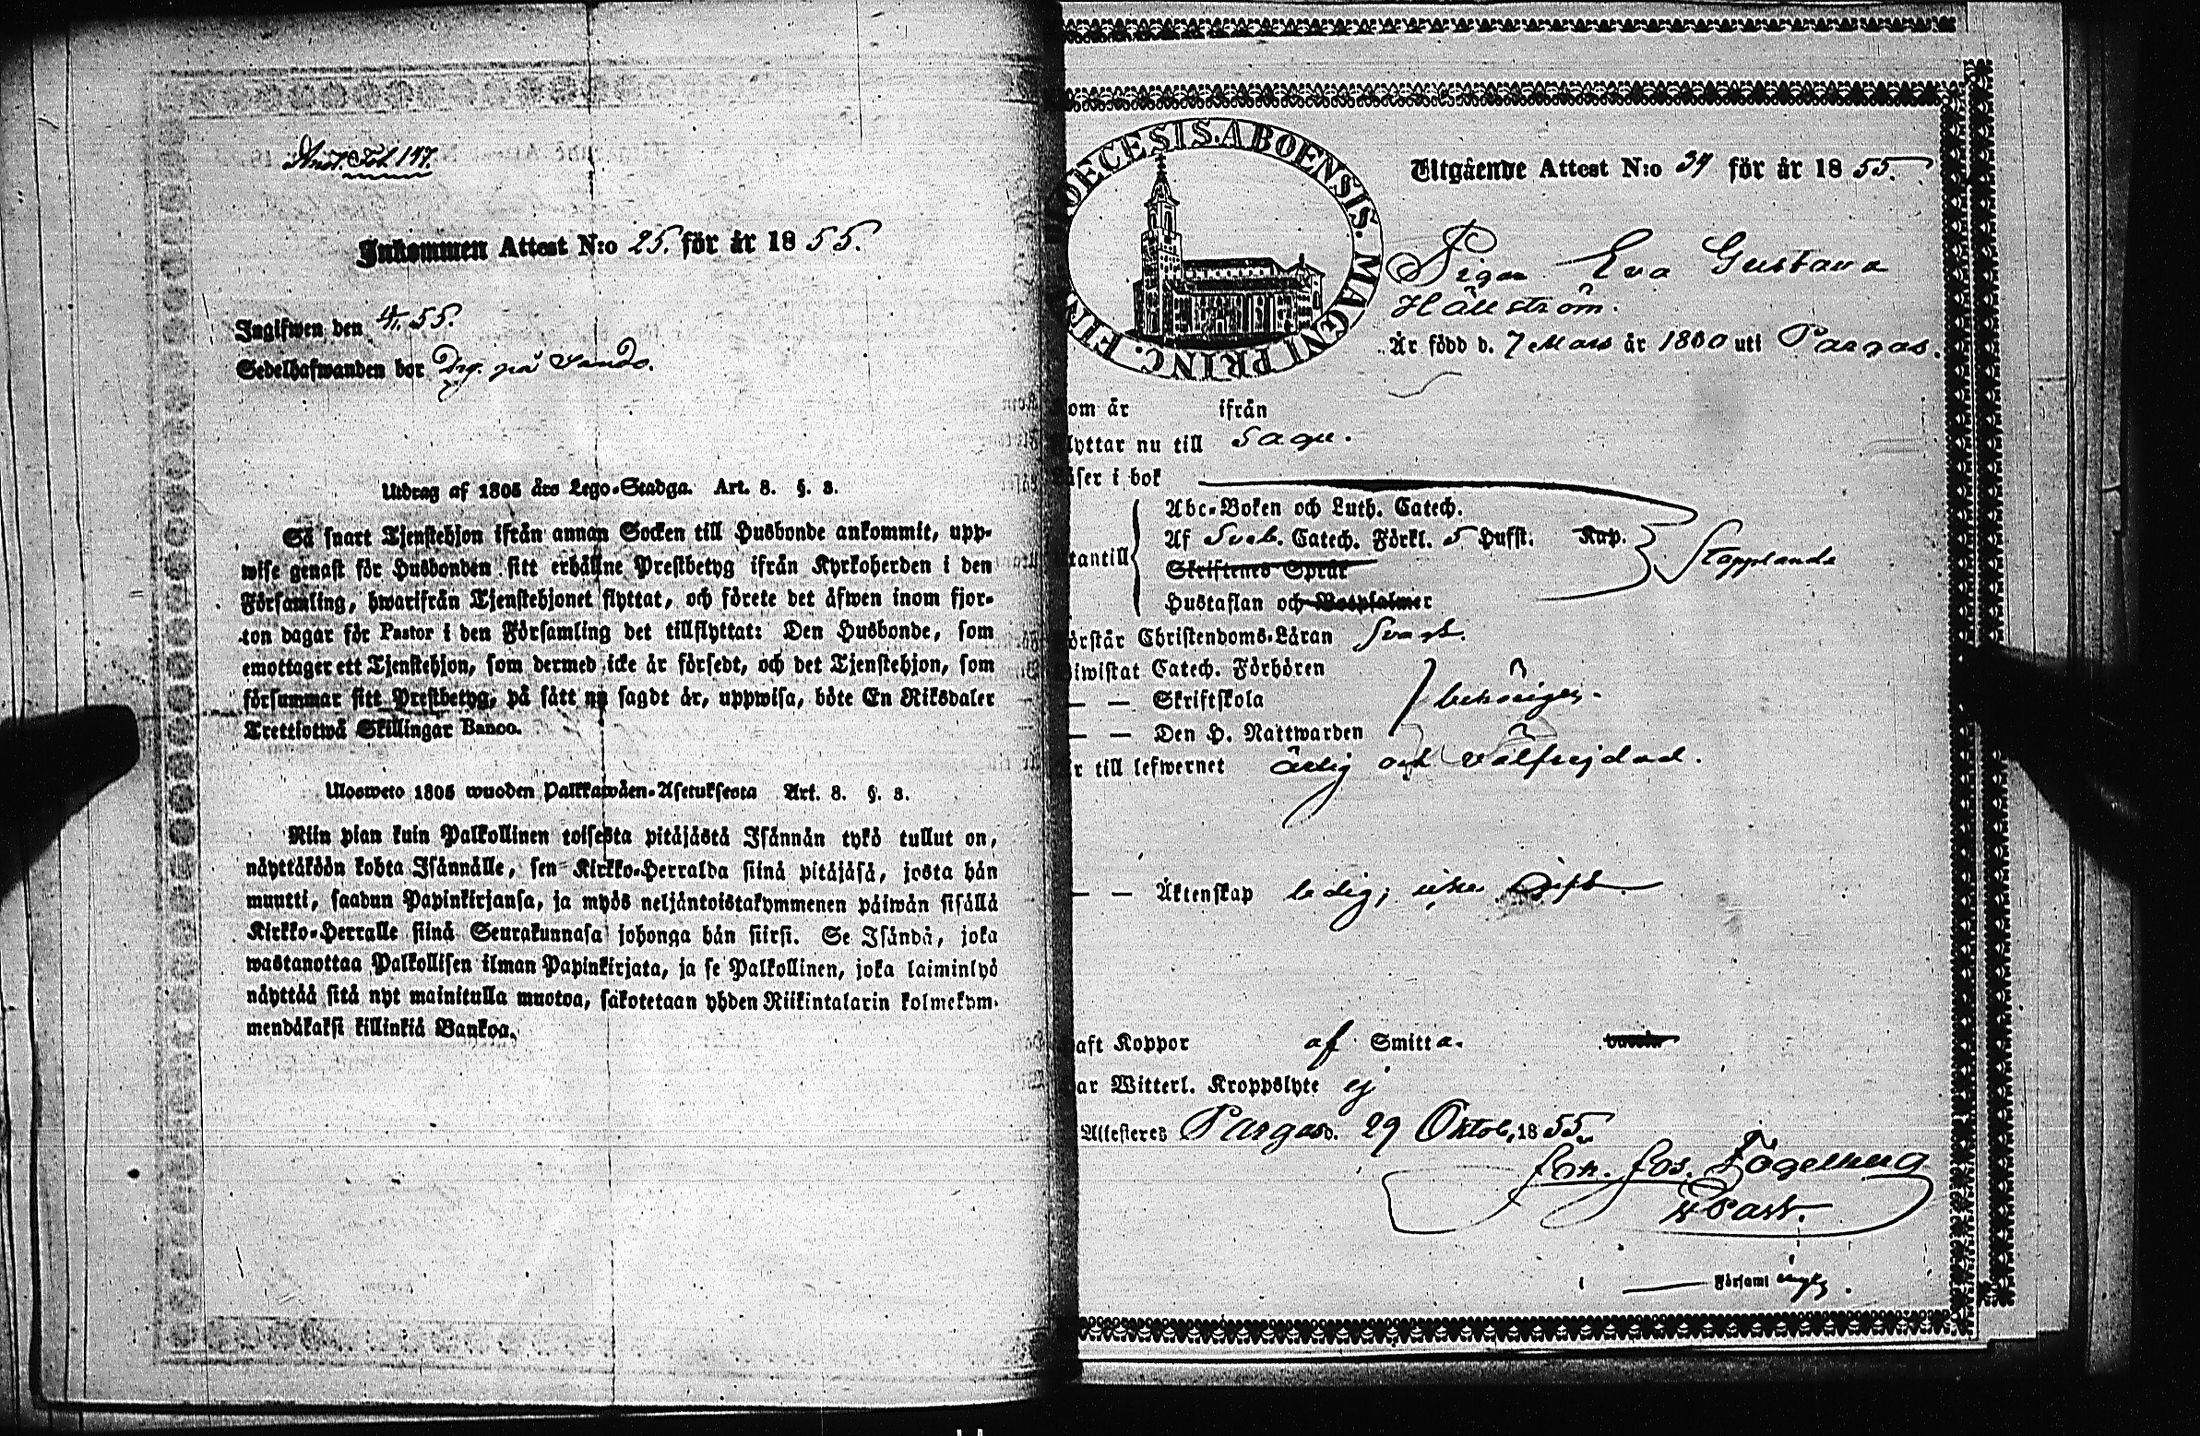 Anot. Fol. 147.
Inkommen Attest N:o 25. för år 1855.
Ingifwen den 4/11 55.
Sedelhafwanden bor Drg. på Sando.
Utdrag af 1805 års Lego-Stadga. Art. 8. §. 8.
Så snart Tjenstehjon ifrån annan Socken till Husbonde ankommit, upp-
wise genast för Husbonden sitt erhållne Prestbetyg ifrån Kyrkoherden i den
Församling, hwarifrån Tjenstehjonet flyttat, och förete det äfwen inom fjor-
ton dagar för Pastor i den Församling det tillflyttat: Den Husbonde, som
emottager ett Tjenstehjon, som dermed icke är försedt, och det Tjenstehjon, som
försummar sitt Prestbetyg, på sätt nu sagdt är, uppwisa, böte En Riksdaler
Trettiotwå Skillingar Banco.
Ulosweto 1805 wuoden Palkkawäen-Asetuksesta Art. 8. §. 8.
Niin pian kuin Palkollinen toisesta pitäjästä Isännän tykö tullut on,
näyttäköön kohta Isännälle, sen Kirkko-Herralda siinä pitäjäsä, josta hän
muutti, saadun Papinkirjansa, ja myös neljäntoistakymmenen päiwän sisällä
Kirkko-Herralle siinä Seurakunnasa johonga hän siirsi. Se Isändä, joka
wastanottaa Palkollisen ilman Papinkirjata, ja se Palkollinen, joka laiminlyö
näyttää sitä nyt mainitulla muotoa, sakotetaan yhden Riikintalarin kolmekym-
mendäkaksi killinkiä Bankoa.
OECESIS. ABOENSIS. MAGNI PRINC. FIN
Utgående Attest N:o 34 för år 1855.
Pigan Eva Gustava
Hällström.
Är född d. 7 Mars år 1800 uti Pargas.
om är ifrån
lyttar nu till Sagu.
äser i bok
Abc-Boken och Luth. Catech.
Af Sveb. Catech. Förkl. 5 Hufst. Kap.
tantill Stapplande
Skriftenes Språk
Hustaflan och Botpsalmer
örstår Christendoms-Läran Svagt.
iwistat Catech. Förhören
— — Skriftskola behörigen.
— — Den H. Nattwarden
r till lefwernet ärlig och välfrejdad.
— — Äktenskap ledig; icke Gift
aft Koppor af Smitta.
ar Witterl. Kroppslyte ej
Attesteres Pargas d. 29 Oktob. 1855.
Joh. Jos. Fogelberg
Past.
Församl ingen.